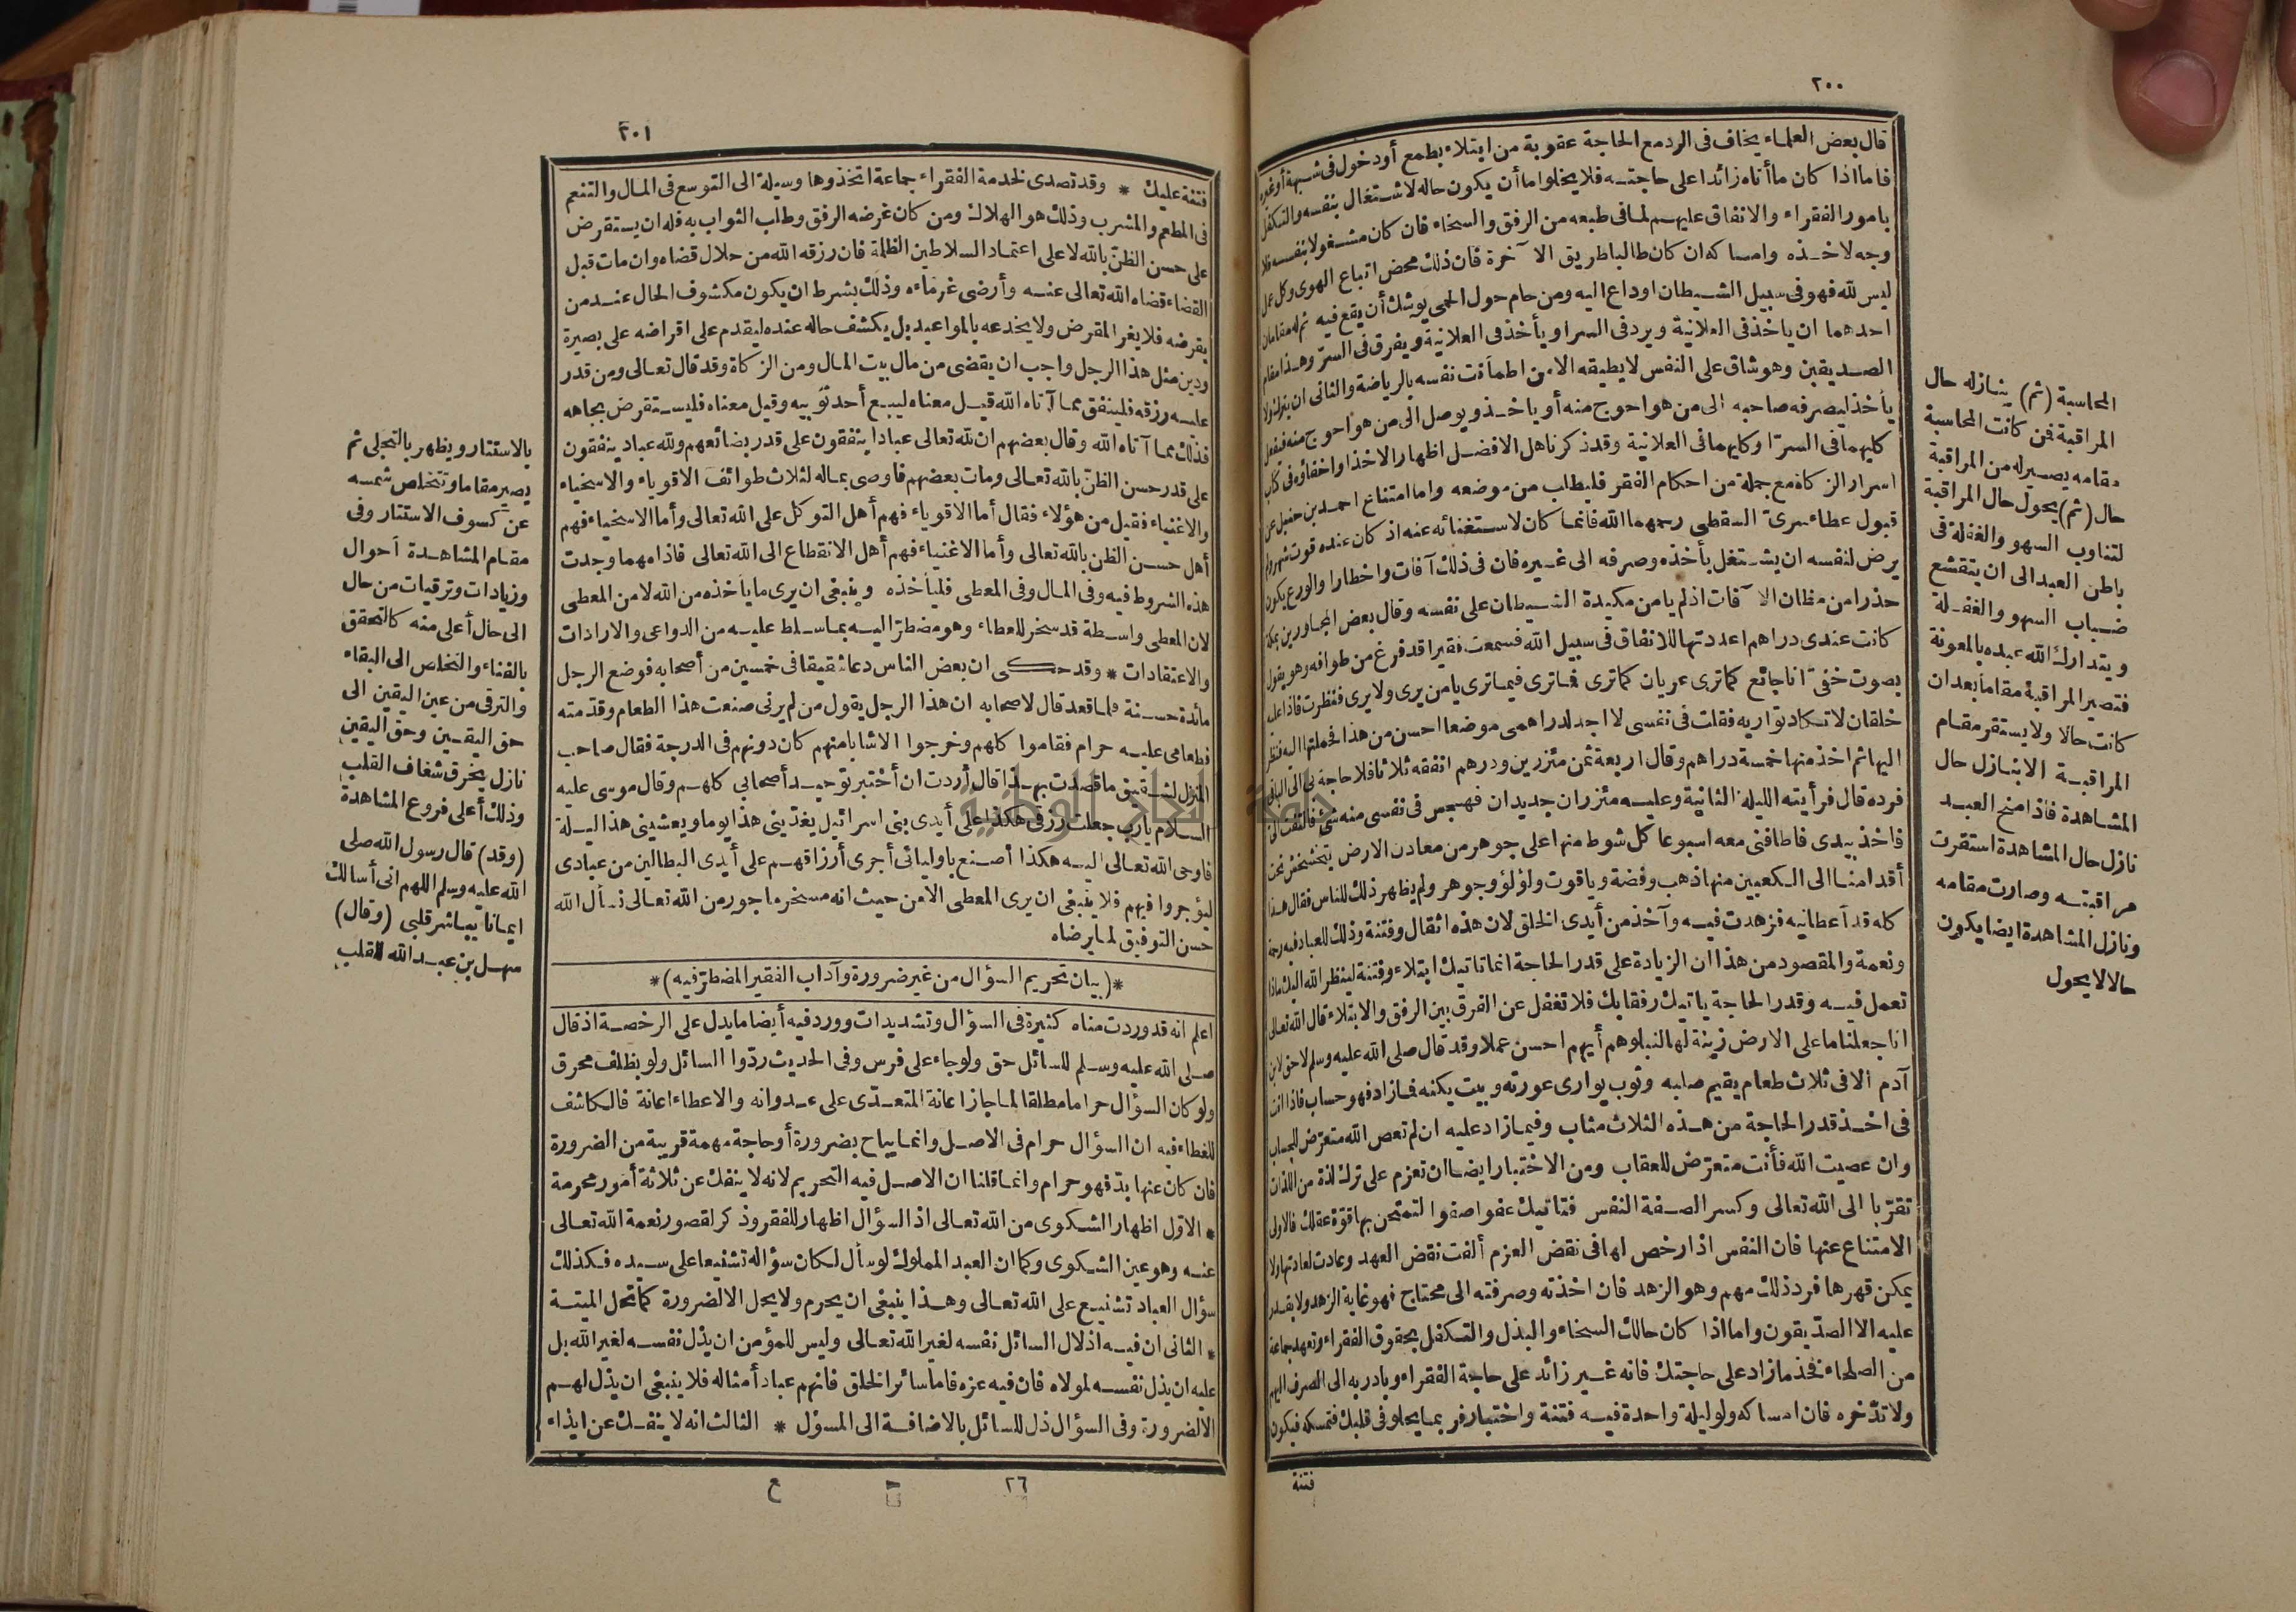 ٢٠٠
قال بعض العلماء يخاف فى الرد مع الحاجة عقوبة من ابتلاء بطمع أو دخول فى شبهة أو غيره
فاما اذا كان ما أتاه زائدا على حاجته فلا يخلو اما أن يكون حاله لاشتغال بنفسه والتكفل
بامور الفقراء والانفاق عليهم لما فى طبعه من الرفق والسخاء فان كان مشغولا بنفسه فلا
وجه لاخذه وامساكه ان كان طالبا طريق الآخرة فان ذلك محض اتباع الهوى وكل عمل
ليس لله فهو فى سبيل الشيطان اوداع اليه ومن حام حول الحمى يوشك أن يقع فيه ثم له مقامان
احدهما ان ياخذ فى العلانية ويرد فى السر او يأخذ فى العلانية ويفرق فى السرّ وهذا مقام
الصديقين وهو شاق على النفس لا يطيقه الا من اطمأنت نفسه بالرياضة والثانى ان يترك ولا
يأخذ ليصرفه صاحبه الى من هو احوج منه أو ياخذ ويوصل الى من هو أحوج منه فيفعل
كليهما فى السرّ او كليهما فى العلانية وقد ذكرنا هل الافضل اظهار الاخذ او اخفاؤه فى كتاب
اسرار الزكاة مع جملة من احكام الفقر فليطلب من موضعه واما امتناع احمد بن حنبل عن
قبول عطاء سرىّ السقطى رحمهما الله فانما كان لاستغنائه عنه اذ كان عنده قوت شهر ولم
يرض لنفسه ان يشتغل بأخذه وصرفه الى غيره فان فى ذلك آفات واخطارا والورع يكون
حذرا من مظان الآفات اذ لم يامن مكيدة الشيطان على نفسه وقال بعض المجاورين بمكة
كانت عندى دراهم اعددتها للانفاق فى سبيل الله فسمعت فقيرا قد فرغ من طوافه وهو يقول
بصوت خفىّ انا جائع كما ترى عريان كما ترى فما ترى فيما ترى يا من يرى ولا يرى فنظرت فاذا عليه
خلقان لا تكاد تواريه فقلت فى نفسى لا اجد لدراهمى موضعا احسن من هذا فحملتها اليه فنظر
اليها ثم اخذ منها خمسة دراهم وقال اربعة ثمن مئزرين ودرهم انفقه ثلاثا فلا حاجة بى الى الباقى
فرده قال فرأيته الليلة الثانية وعليه مئزران جديدان فهجس فى نفسى منه شئ فالتفت الىّ
فاخذ بيدى فاطافنى معه اسبوعا كل شوط منها على جوهر من معادن الارض يتخشخش تحت
أقدامنا الى الكعبين منها ذهب وفضة وياقوت ولؤلؤ وجوهر ولم يظهر ذلك للناس فقال هذا
كله قد أعطانيه فزهدت فيه وآخذ من أيدى الخلق لان هذه اثقال وفتنة وذلك للعباد فيه رحمة
ونعمة والمقصود من هذا ان الزيادة على قدر الحاجة انما تاتيك ابتلاء وفتنة لينظر الله اليك ماذا
تعمل فيه وقدر الحاجة ياتيك رفقا بك فلا تغفل عن الفرق بين الرفق والابتلاء قال الله تعالى
انا جعلنا ما على الارض زينة لها لنبلوهم أيهم احسن عملا وقد قال صلى الله عليه وسلم لا حق لابن
آدم الا فى ثلاث طعام يقيم صلبه وثوب يوارى عورته وبيت يكنه فما زاد فهو حساب فاذا انت
فى اخذ قدر الحاجة من هذه الثلاث مثاب وفيما زاد عليه ان لم تعص الله متعرّض للحساب
وان عصيت الله فأنت متعرّض للعقاب ومن الاختبار ايضا ان تعزم على ترك لذة من اللذات
تقرّبا الى الله تعالى وكسر الصفة النفس فتاتيك عفوا صفوا لتمتحن بها قوّة عقلك فالاولى
الامتناع عنها فان النفس اذا رخص لها فى نقض العزم ألفت نقض العهد وعادت لعادتها ولا
يمكن قهرها فرد ذلك مهم وهو الزهد فان اخذته وصرفته الى محتاج فهو غاية الزهد ولا يقدر
عليه الا الصدّيقون واما اذا كان حالك السخاء والبذل والتكفل بحقوق الفقراء وتعهد جماعة
من الصلحاء فخذ ما زاد على حاجتك فانه غير زائد على حاجة الفقراء وبادر به الى الصرف اليهم
ولا تدّخره فان امساكه ولو ليلة واحدة فيه فتنة واختبار فربما يحلو فى قلبك فتمسكه فيكون
فتنة
المحاسبة (ثم) ينازله حال
المراقبة فمن كانت المحاسبة
مقامه يصير له من المراقبة
حال (ثم) يحول حال المراقبة
لتناوب السهو والغفلة فى
باطن العبد الى ان يتقشع
ضباب السهو والغفلة
ويتدارك الله عبده بالمعونة
فتصير المراقبة مقاما بعد ان
كانت حالا ولا يستقر مقام
المراقبة الا بنازل حال
المشاهدة فاذا منح العبد
نازل حال المشاهدة استقرت
مراقبته وصارت مقامه
ونازل المشاهدة ايضا يكون
حالا لا يحول
٢٠١
فتنة عليك * وقد تصدى لخدمة الفقراء جماعة اتخذوها وسيلة الى التوسع فى المال والتنعم
فى المطعم والمشرب وذلك هو الهلاك ومن كان غرضه الرفق وطلب الثواب به فله ان يستقرض
على حسن الظنّ بالله لا على اعتماد السلاطين الظلمة فان رزقه الله من حلال قضاه وان مات قبل
القضاء قضاه الله تعالى عنه وأرضى غرماءه وذلك بشرط ان يكون مكشوف الحال عند من
يقرضه فلا يغر المقرض ولا يخدعه بالمواعيد بل يكشف حاله عنده ليقدم على اقراضه على بصيرة
ودين مثل هذا الرجل واجب ان يقضى من مال بيت المال ومن الزكاة وقد قال تعالى ومن قدر
عليه رزقه فلينفق مما آتاه الله قيل معناه ليبع أحد ثوبيه وقيل معناه فليستقرض بجاهه
فذلك مما آتاه الله وقال بعضهم ان لله تعالى عبادا ينفقون على قدر بضائعهم ولله عباد ينفقون
على قدر حسن الظنّ بالله تعالى ومات بعضهم فاوصى بماله لثلاث طوائف الاقوياء والاسخياء
والاغنياء فقيل من هؤلاء فقال أما الاقوياء فهم أهل التوكل على الله تعالى وأما الاسخياء فهم
أهل حسن الظن بالله تعالى وأما الاغنياء فهم أهل الانقطاع الى الله تعالى فاذا مهما وجدت
هذه الشروط فيه وفى المال وفى المعطى فليأخذه وينبغى ان يرى ما يأخذه من الله لا من المعطى
لان المعطى واسطة قد سخر للعطاء وهو مضطرّ اليه بما سلط عليه من الدواعى والارادات
والاعتقادات * وقد حكى ان بعض الناس دعا شقيقا فى خمسين من أصحابه فوضع الرجل
مائدة حسنة فلما قعد قال لاصحابه ان هذا الرجل يقول من لم يرنى صنعت هذا الطعام وقدّمته
فطعامى عليه حرام فقاموا كلهم وخرجوا الا شابا منهم كان دونهم فى الدرجة فقال صاحب
المنزل لشقيق ما قصدت بهذا قال أردت ان أختبر توحيد أصحابى كلهم وقال موسى عليه
السلام يارب جعلت رزقى هكذا على أيدى بنى اسرائيل يغدّينى هذا يوما ويعشينى هذا ليلة
فاوحى الله تعالى اليه هكذا أصنع باوليائى أجرى أرزاقهم على أيدى البطالين من عبادى
ليؤجروا فيهم فلا ينبغى ان يرى المعطى الا من حيث انه مسخر ماجور من الله تعالى نسأل الله
حسن التوفيق لما يرضاه
*(بيان تحريم السؤال من غير ضرورة وآداب الفقير المضطرّ فيه)*
اعلم انه قد وردت مناه كثيرة فى السؤال وتشديدات وورد فيه أيضا ما يدل على الرخصة اذ قال
صلى الله عليه وسلم للسائل حق ولو جاء على فرس وفى الحديث ردّوا السائل ولو بظلف محرق
ولو كان السؤال حراما مطلقا لما جاز اعانة المتعدّى على عدوانه والاعطاء اعانة فالكاشف
للغطاء فيه ان السؤال حرام فى الاصل وانما يباح بضرورة أو حاجة مهمة قريبة من الضرورة
فان كان عنها بدّ فهو حرام وانما قلنا ان الاصل فيه التحريم لانه لا ينفك عن ثلاثة أمور محرمة
* الاوّل اظهار الشكوى من الله تعالى اذ السؤال اظهار للفقر وذكر لقصور نعمة الله تعالى
عنه وهو عين الشكوى وكما ان العبد المملوك لو سأل لكان سؤاله تشنيعا على سيده فكذلك
سؤال العباد تشنيع على الله تعالى وهذا ينبغى ان يحرم ولا يحل الا لضرورة كما تحل الميتة
* الثانى ان فيه اذلال السائل نفسه لغير الله تعالى وليس للمؤمن ان يذل نفسه لغير الله بل
عليه ان يذل نفسه لمولاه فان فيه عزه فاما سائر الخلق فانهم عباد أمثاله فلا ينبغى ان يذل لهم
الا لضرورة وفى السؤال ذل للسائل بالاضافة الى المسؤل * الثالث انه لا ينفك عن ايذاء
٢٦ ح
بالاستتار ويظهر بالتجلى ثم
يصير مقاما وتتخلص شمسه
عن كسوف الاستتار وفى
مقام المشاهدة أحوال
وزيادات وترقيات من حال
الى حال أعلى منه كالتحقق
بالفناء والتخلص الى البقاء
والترقى من عين اليقين الى
حق اليقين وحق اليقين
نازل يخرق شغاف القلب
وذلك أعلى فروع المشاهدة
(وقد) قال رسول الله صلى
الله عليه وسلم اللهم انى أسألك
ايمانا يباشر قلبى (وقال)
سهل بن عبد الله للقلب